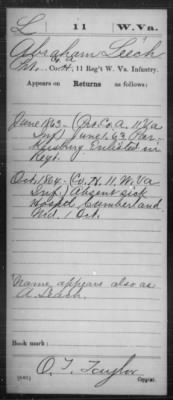 L | 11 | W. Va.
Abraham Leech
& A
Pvt., Co. H, 11 Reg't W. Va. Infantry.
Appears on
Returns as follows:
June 1863 - (Pvt. Co. A. 11 Va
Inf.) June 1, 63 Par-
kersburg Enlisted in
Regt.
Oct. 1864 - (Co. H. 11, W. Va
Inf.) Absent sick
Hospl. Cumberland
Md. 1 Oct.
Name appears also as
A. Leach.
Book mark:
O. T. Taylor
Copyist.